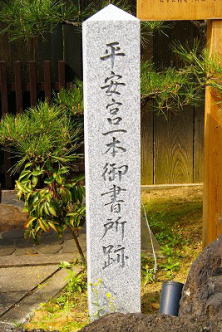 平安宮一本御書所跡